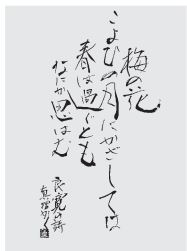 梅の花
こよひの月にかざしては
春は過ぐとも
なにか思はむ
良寛の詩